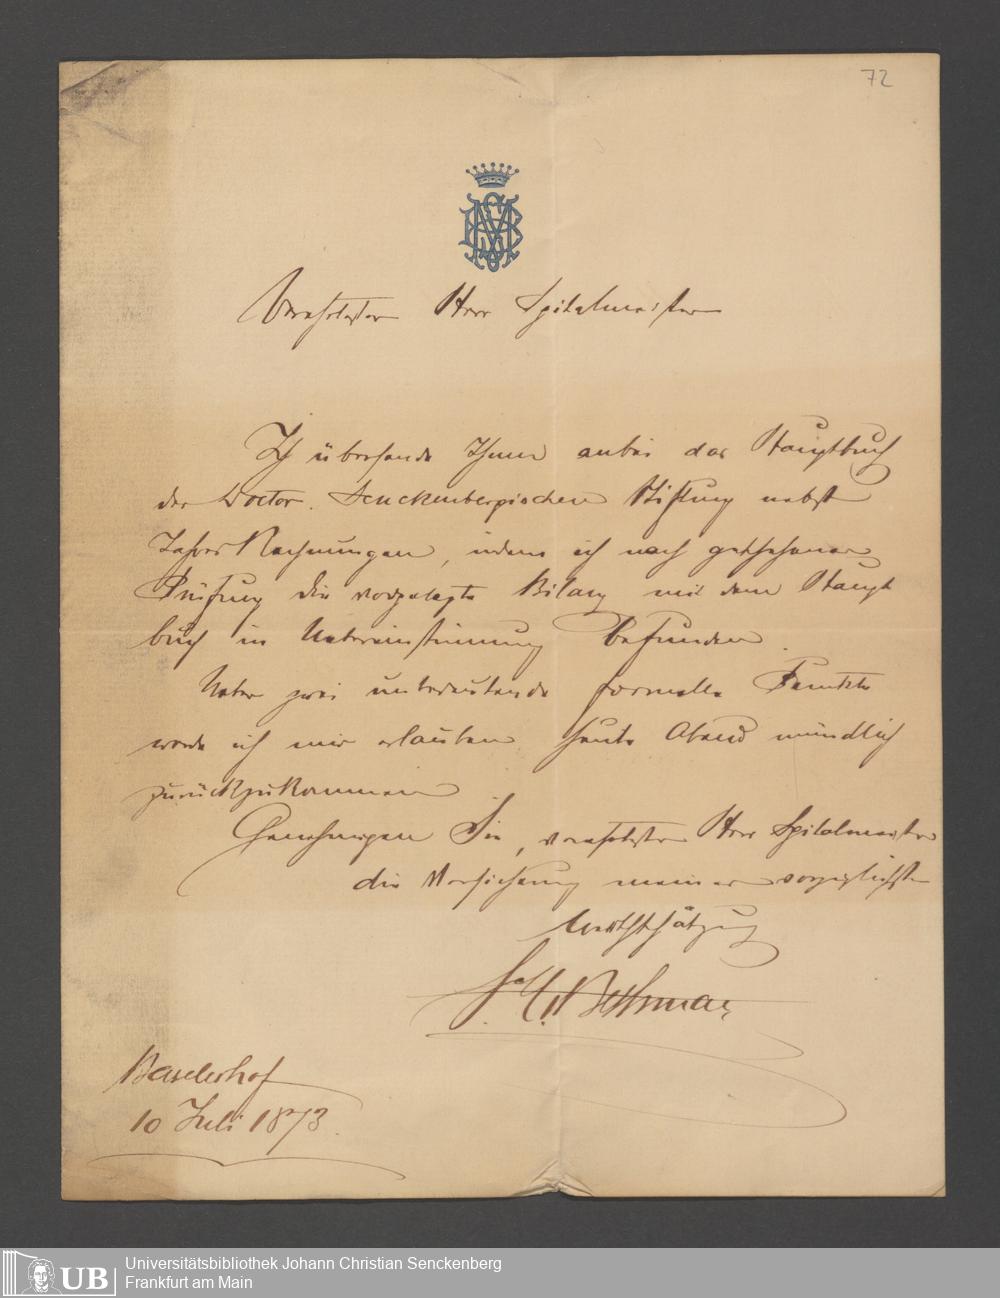 72
Verehrtester Herr Spitalmeister
Ich übersende Ihnen anbei das Hauptbuch
der Doctor. Senckenbergischen Stiftung nebst
Jahres Rechnungen, indem ich nach geschehener
Prüfung die vorgelegte Bilanz mit dem Haupt
buch in Uebereinstimmung befunden.
Ueber zwei unbedeutende formelle Punkte
werde ich mir erlauben heute Abend mündlich
zurückzukommen
Genehmigen Sie, verehrtester Herr Spitalmeister
die Versicherung meiner vorzüglichsten
Werthschätzung
v Bethmann
Baselerhof
10 Juli 1873.
UB
Universitätsbibliothek Johann Christian Senckenberg
Frankfurt am Main